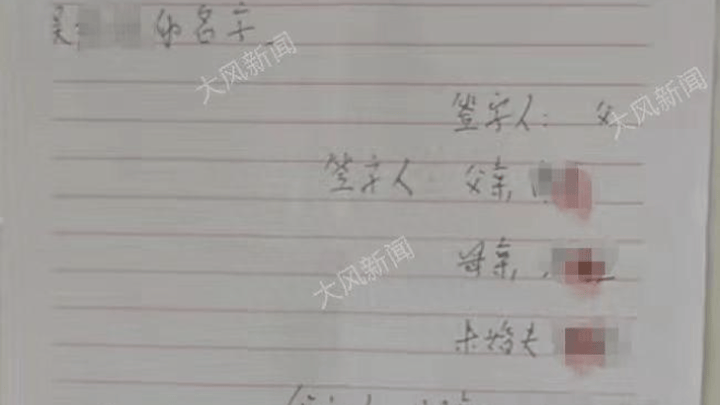 的名字
大风新闻
大风新闻
签字人： 父
签字人 父亲
大风新闻
母亲
未婚夫